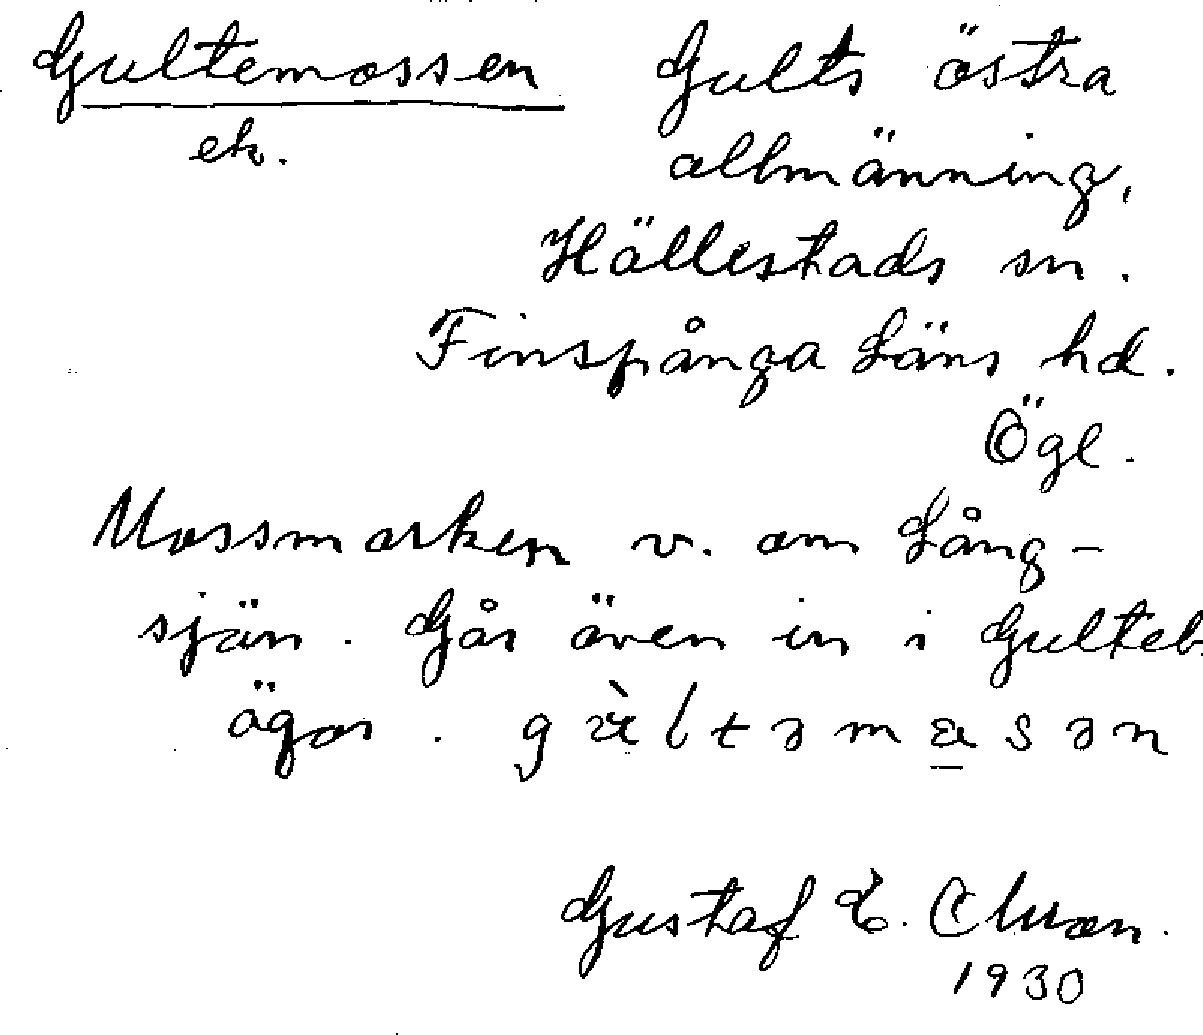 Gultemossen Gults östra
ek. allmänning,
Hällestads sn.
Finspånga Läns hd.
Ögl.
Mossmarken v. om Lång-
sjön. Går även in i Gulteb.
ägor.
Gustaf E.
1930